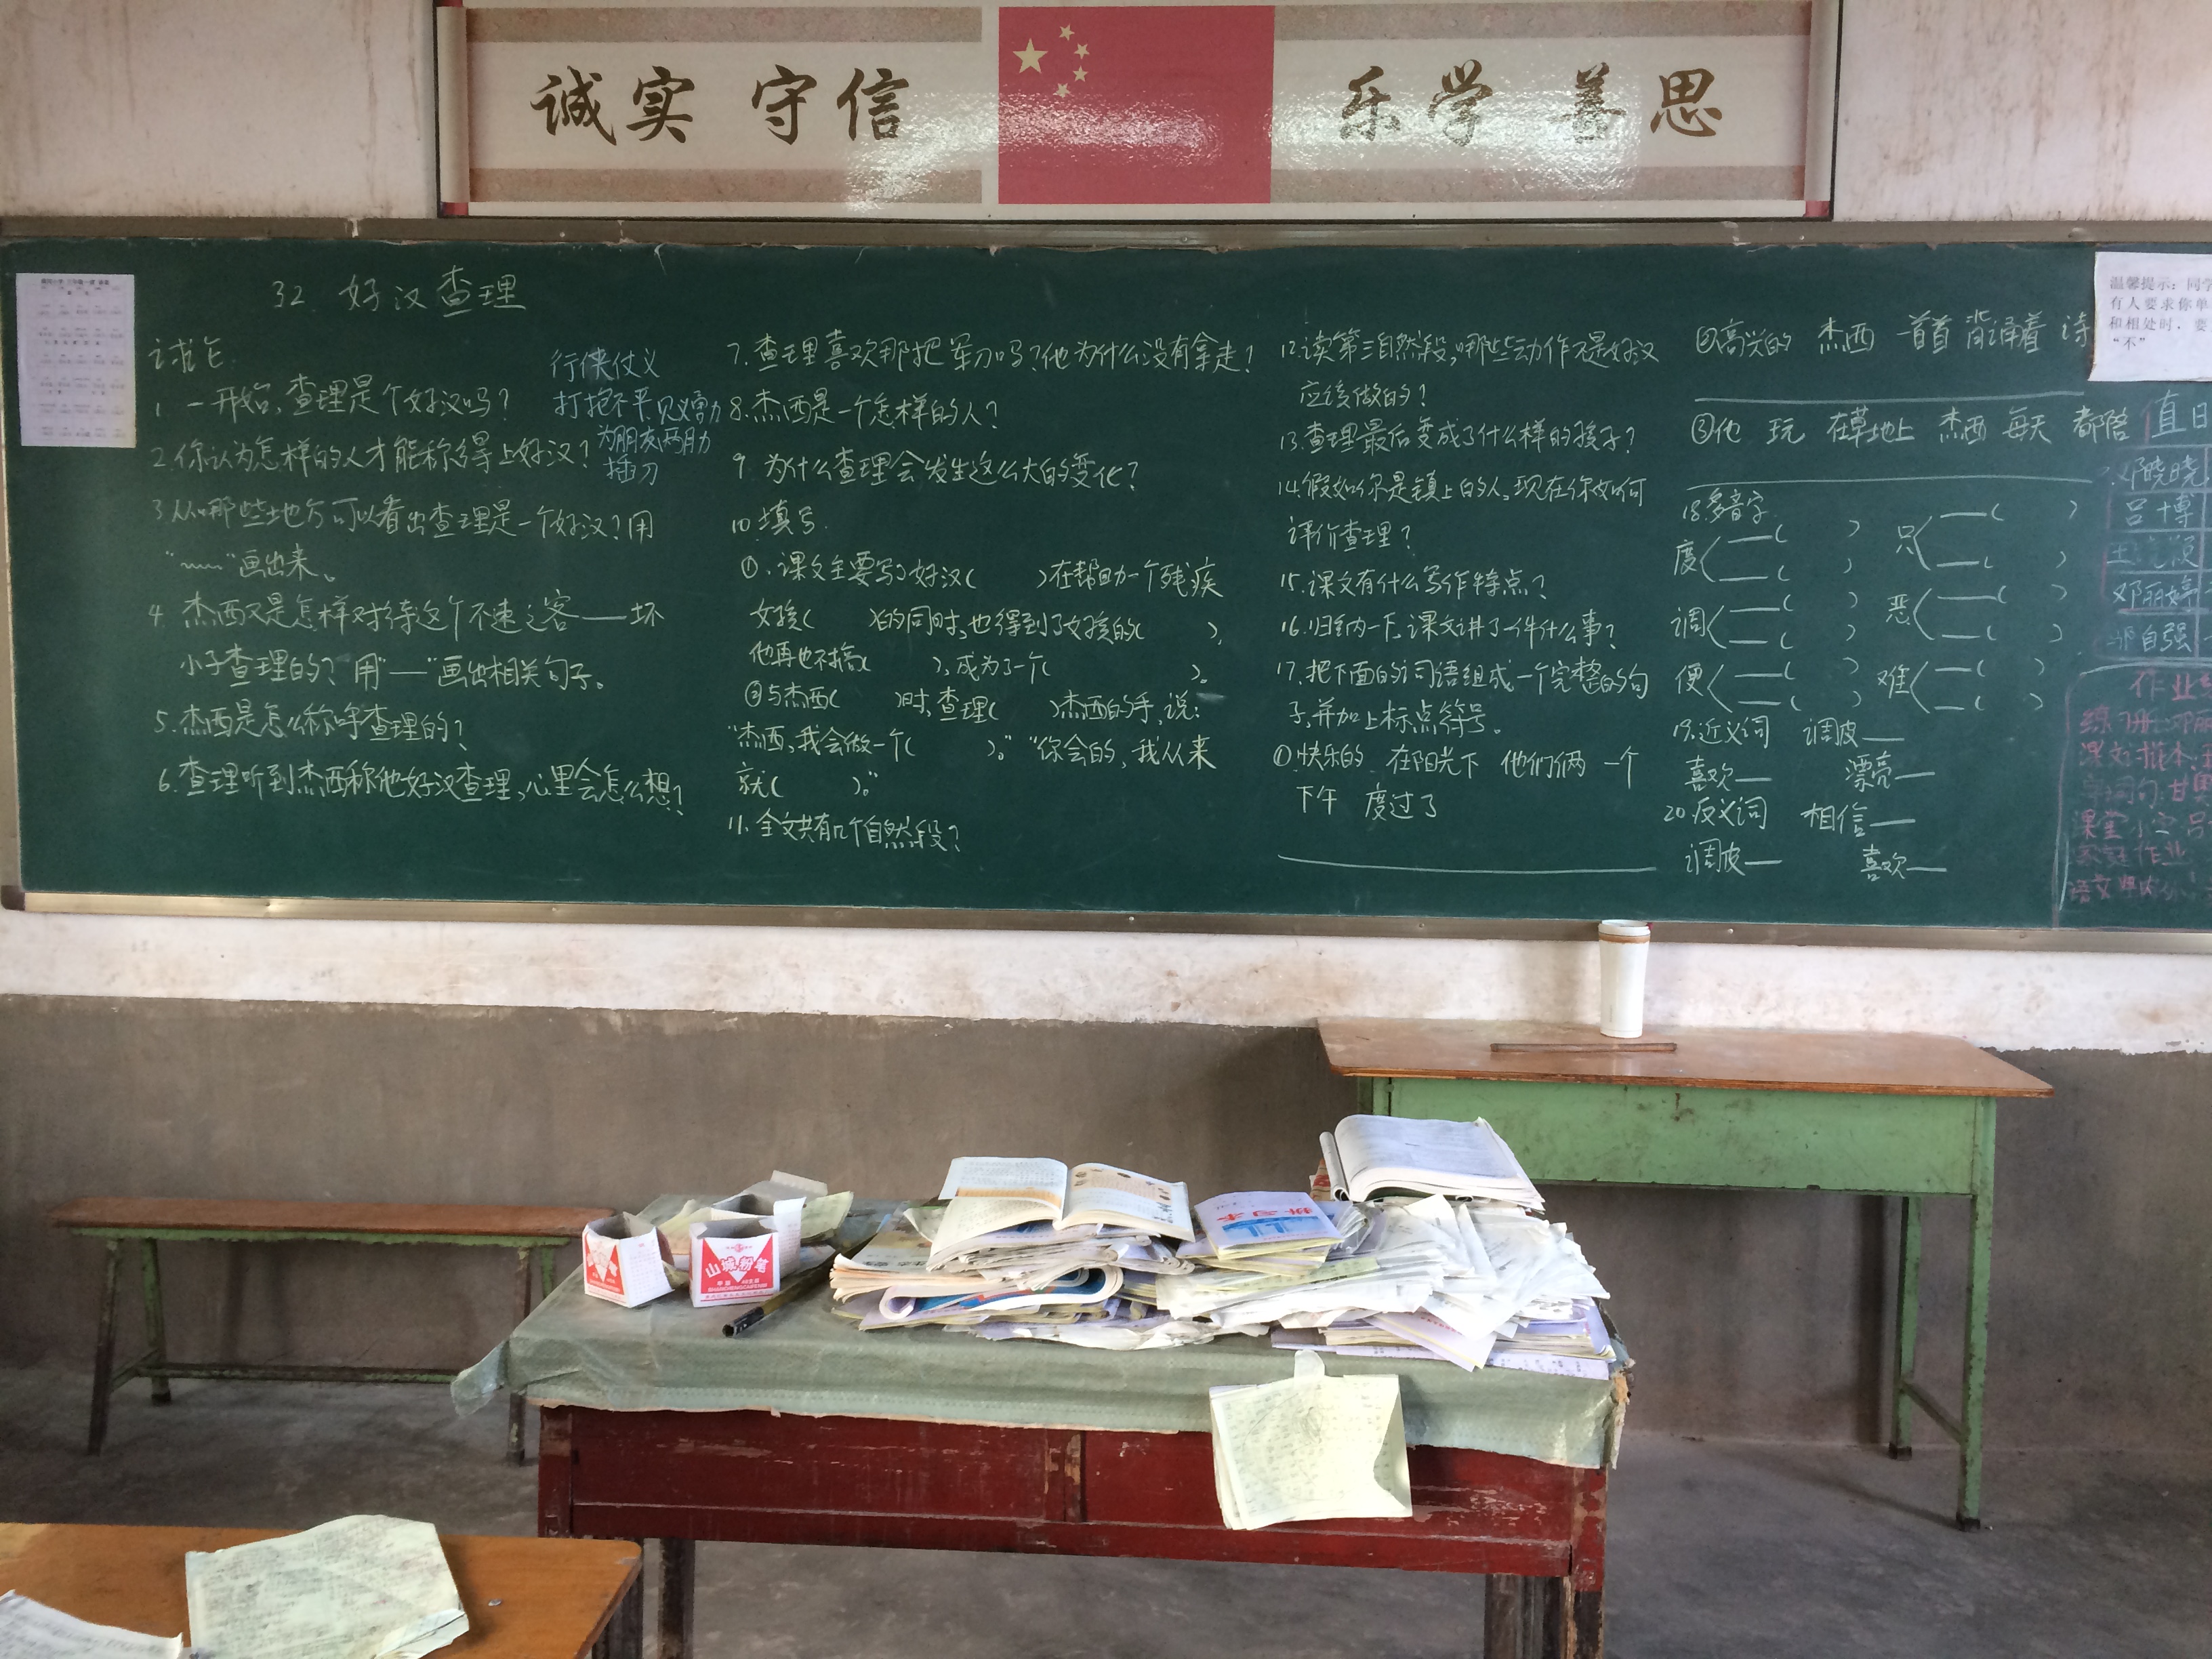 诚实 守信
乐学 善思
32. 好汉查理
讨论
1 一开始,查理是个好汉吗?
2.你认为怎样的人才能称得上好汉?
行侠仗义
打抱不平,见义勇
为朋友两肋
插刀
3从哪些地方可以看出查理是一个好汉?用
“﹏﹏”画出来。
4. 杰西又是怎样对待这个不速之客——坏
小子查理的?用“—”画出相关句子。
5.杰西是怎么称呼查理的?
6.查理听到杰西称他好汉查理,心里会怎么想?
7.查理喜欢那把军刀吗?他为什么没有拿走?
8.杰西是一个怎样的人?
9.为什么查理会发生这么大的变化?
10.填写.
①、课文主要写了好汉( )在帮助一个残疾
女孩( )的同时,也得到了女孩的( ),
他再也不搞( ),成为了一个( )。
②与杰西( )时,查理( )杰西的手,说:
“杰西,我会做一个( )。”“你会的,我从来
就( )。”
11.全文共有几个自然段?
12.读第三自然段,哪些动作不是好汉
应该做的?
13.查理最后变成了什么样的孩子?
14.假如你是镇上的人,现在你如何
评价查理?
15.课文有什么写作特点?
16.归纳一下,课文讲了一件什么事?
17.把下面的词语组成一个完整的句
子,并加上标点符号。
①快乐的 在阳光下 他们俩 一个
下午 度过了
②高兴的 杰西 一首首 背诵着 诗
③他 玩 在草地上 杰西 每天 都陪
18.多音字
度 —( ) —( )
只 —( ) —( )
调 —( ) —( )
恶 —( ) —( )
便 —( ) —( )
难 —( ) —( )
19.近义词 调皮—
喜欢— 漂亮—
20.反义词 相信—
调皮— 喜欢—
温馨提示:同学
有人要求你单
和相处时,要
“不”
值日
邓晓晓
吕博
邓丽婷
自强
作业
练习册:邓丽
家庭作业
山城粉笔
SHANCHENGCAIFENBI
练习本